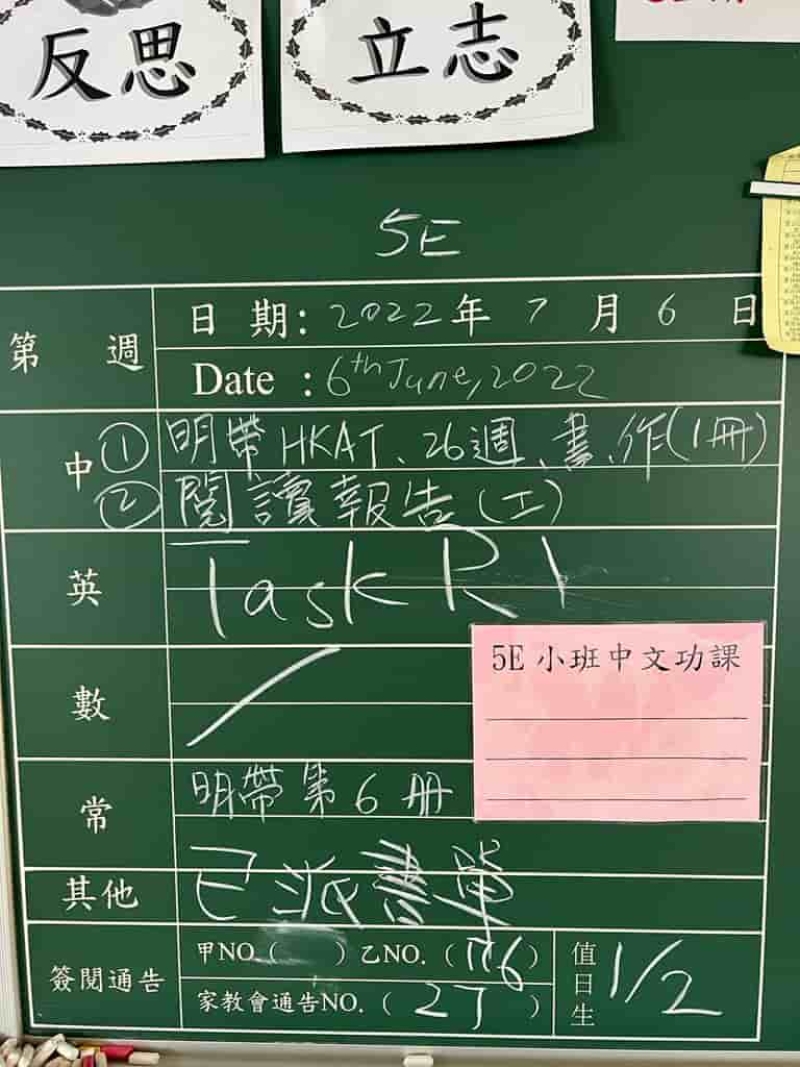 反思
立志
5E
第 週
日 期: 2022年 7 月 6 日
Date : 6th June, 2022
中 ① 明帶HKAT、26週、書、作(1冊)
② 閱讀報告(工)
英 Task R1
數 /
5E 小班中文功課
常 明帶第6冊
其他 已派書單
簽閱通告 甲NO.( ) 乙NO.(116)
家教會通告NO.(27)
值日生 1/2